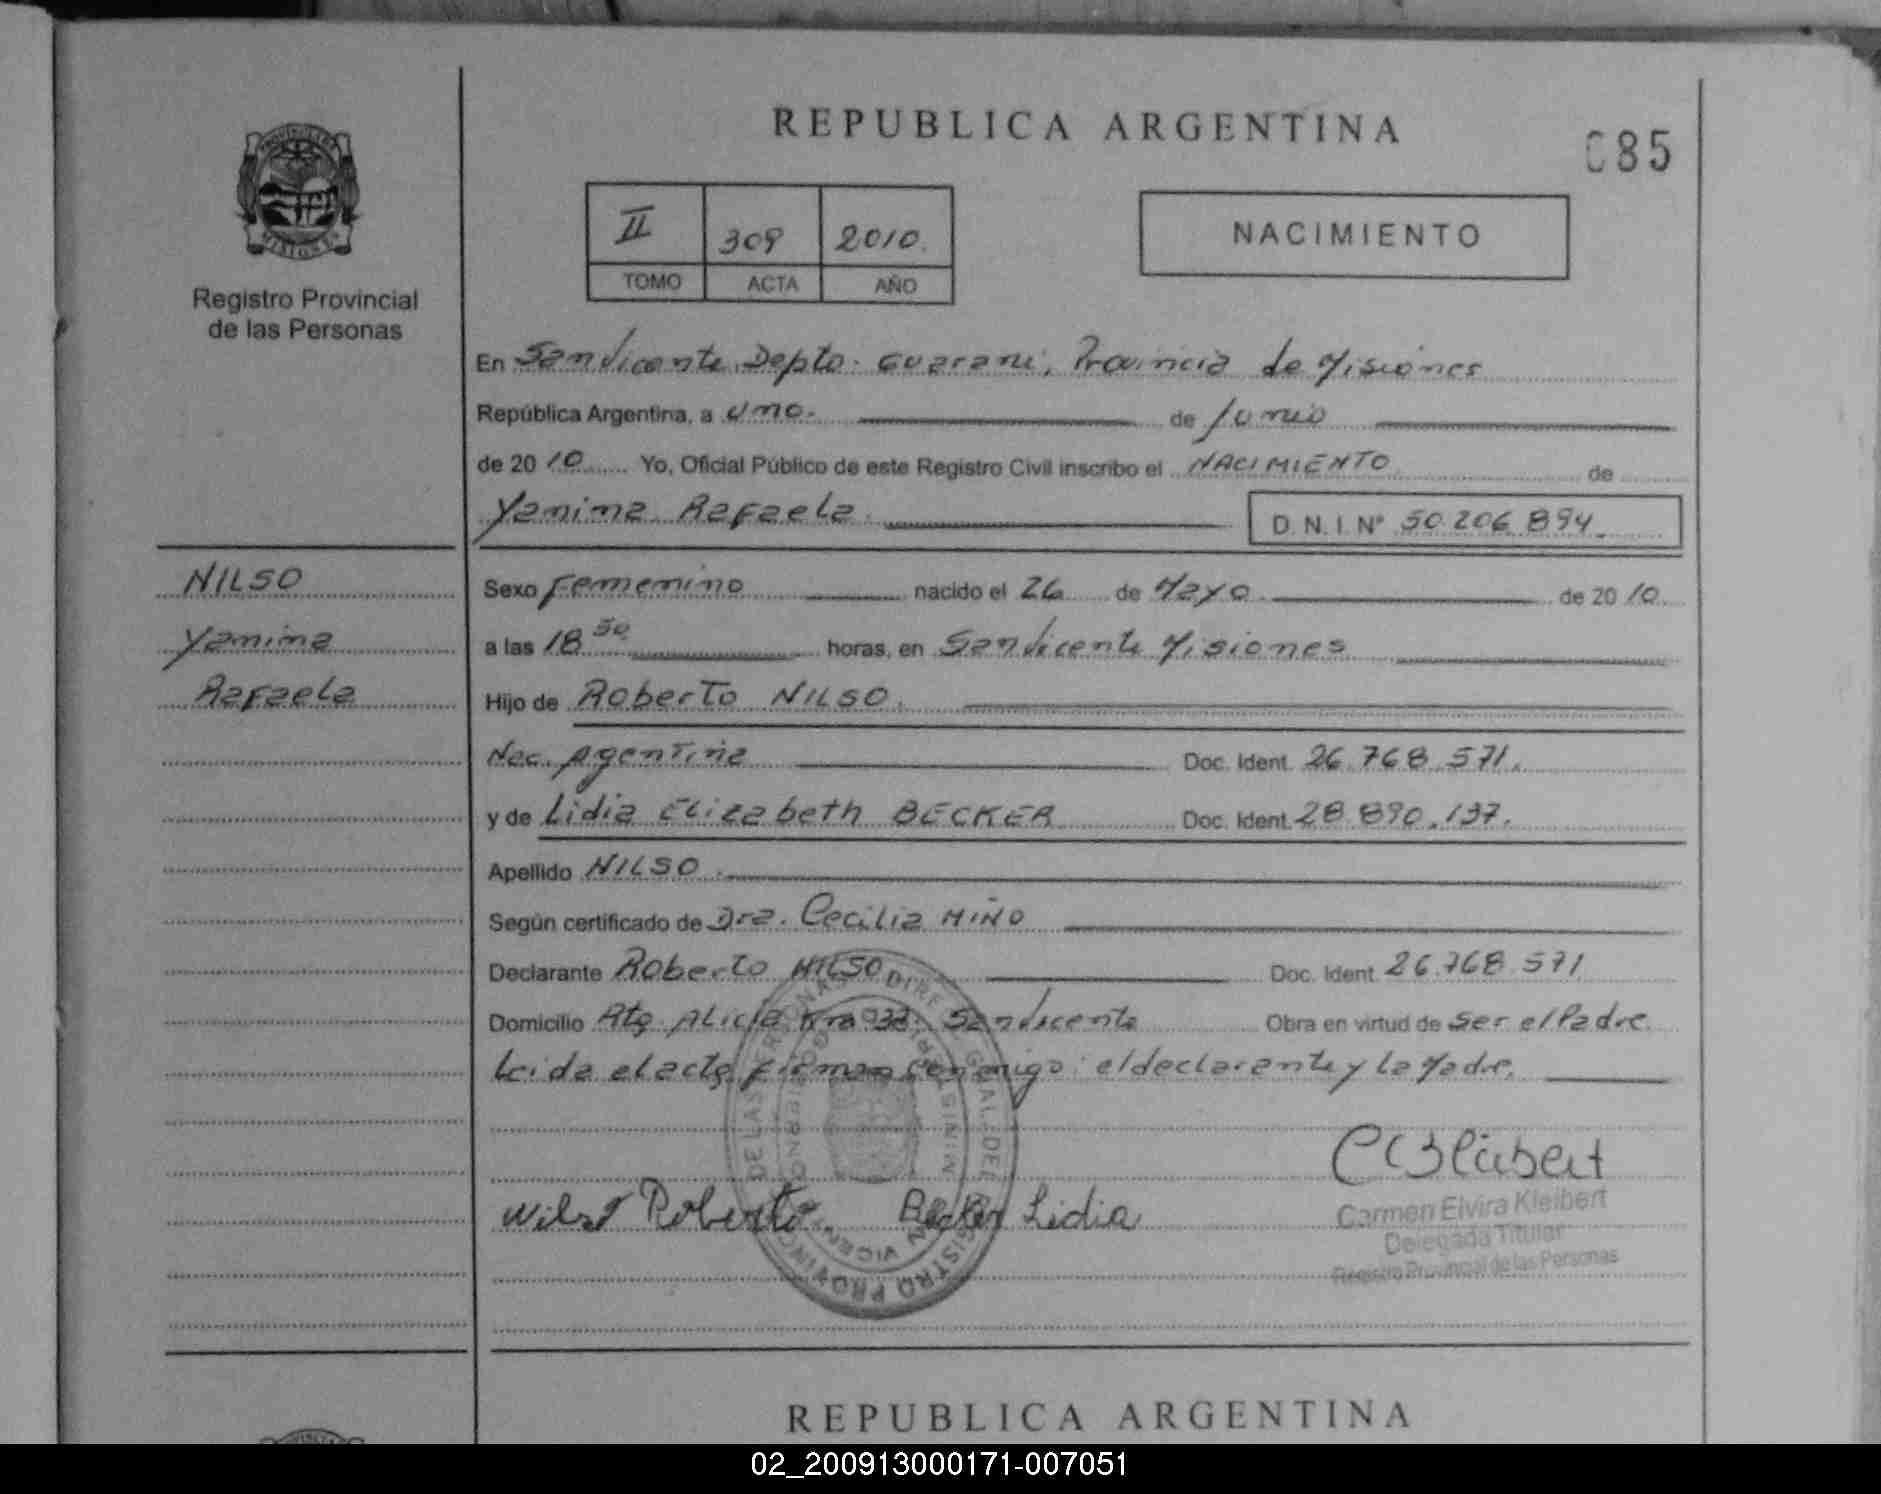 REPUBLICA ARGENTINA
085
II 309 2010.
TOMO ACTA AÑO
NACIMIENTO
Registro Provincial
de las Personas
En San Vicente Depto. Guarani, Provincia de Misiones
República Argentina, a uno. de Junio
de 2010 Yo, Oficial Público de este Registro Civil inscribo el NACIMIENTO de
Yanina Rafaela. D.N.I. Nº 50.206.894
NILSO
Yanina
Rafaela
Sexo Femenino nacido el 26 de Mayo de 2010.
a las 18 50 horas, en San Vicente Misiones
Hijo de Roberto NILSO.
Nac. Agentina Doc. Ident. 26.768.571.
y de Lidia Elizabeth BECKER Doc. Ident. 28.890.137.
Apellido NILSO.
Según certificado de Dra. Cecilia MIÑO
Declarante Roberto NILSO Doc. Ident. 26.768.571
Domicilio Alicia San Vicente Obra en virtud de Ser el Padre
Leida el acta firman conmigo: el declarante y la Madre.
Nilso Roberto Becker Lidia
Carmen Elvira Kleibert
Delegada Titular
Registro Provincial de las Personas
REPUBLICA ARGENTINA
02_200913000171-007051